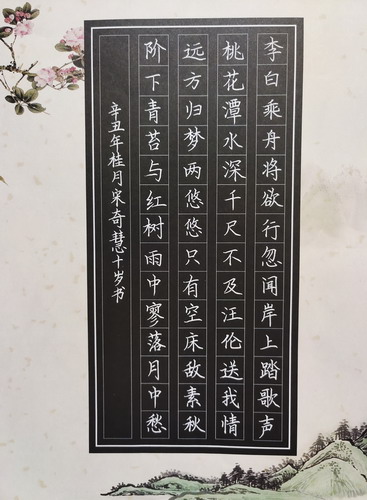 李白乘舟将欲行忽闻岸上踏歌声
桃花潭水深千尺不及汪伦送我情
远方归梦两悠悠只有空床敌素秋
阶下青苔与红树雨中寥落月中愁
辛丑年桂月宋奇慧十岁书